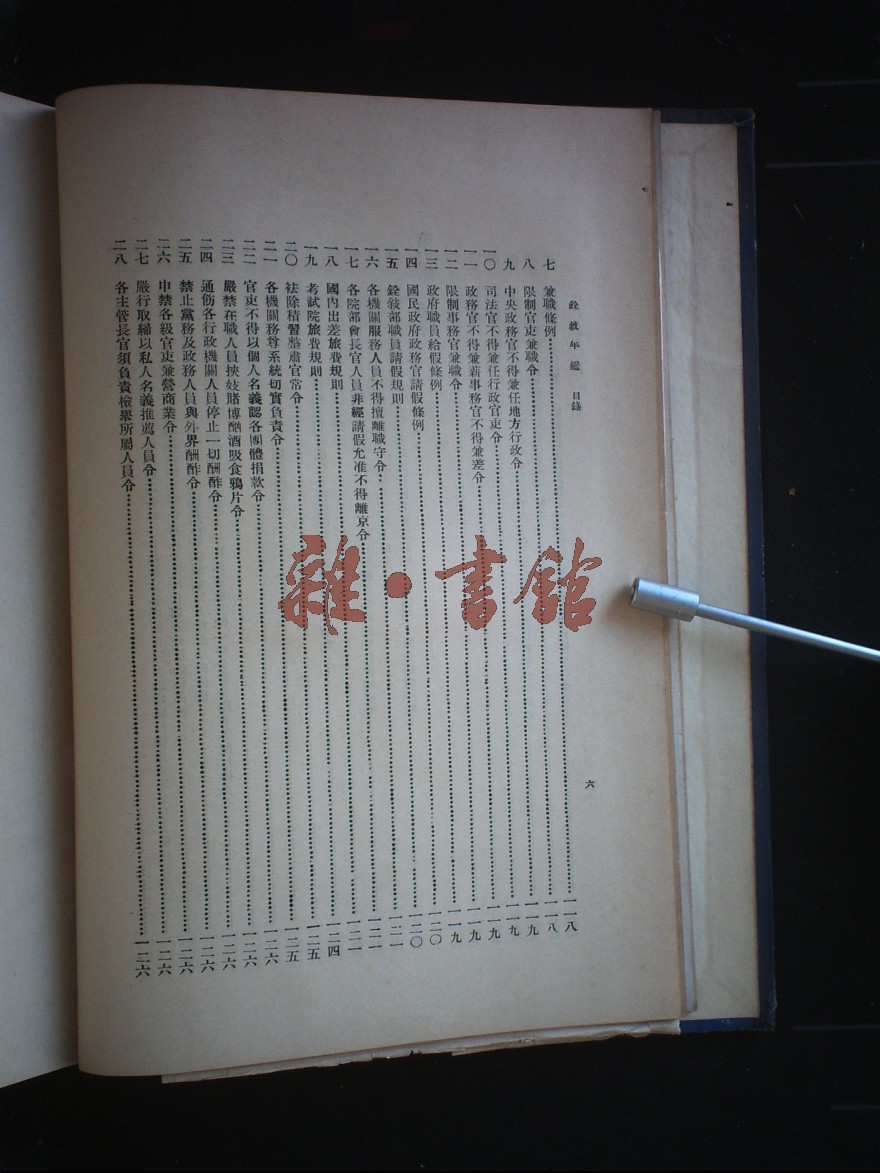 銓敘年鑑 目錄
六
七 兼職條例……一一八
八 限制官吏兼職令……一一八
九 中央政務官不得兼任地方行政令……一一九
一〇 司法官不得兼任行政官吏令……一一九
一一 政務官不得兼薪事務官不得兼差令……一一九
一二 限制事務官兼職令……一一九
一三 政府職員給假條例……一一九
一四 國民政府政務官請假條例……一二〇
一五 銓敍部職員請假規則……一二〇
一六 各機關服務人員不得擅離職守令……一二一
一七 各院部會長官人員非經請假允准不得離京令……一二一
一八 國內出差旅費規則……一二一
一九 考試院旅費規則……一二四
二〇 祛除積習整肅官常令……一二五
二一 各機關務尊系統切實負責令……一二五
二二 官吏不得以個人名義認各團體捐款令……一二六
二三 嚴禁在職人員挾妓賭博酗酒吸食鴉片令……一二六
二四 通飭各行政機關人員停止一切酬酢令……一二六
二五 禁止黨務及政務人員與外界酬酢令……一二六
二六 申禁各級官吏兼營商業令……一二六
二七 嚴行取締以私人名義推薦人員令……一二六
二八 各主管長官須負責檢舉所屬人員令……一二六
雜·書館